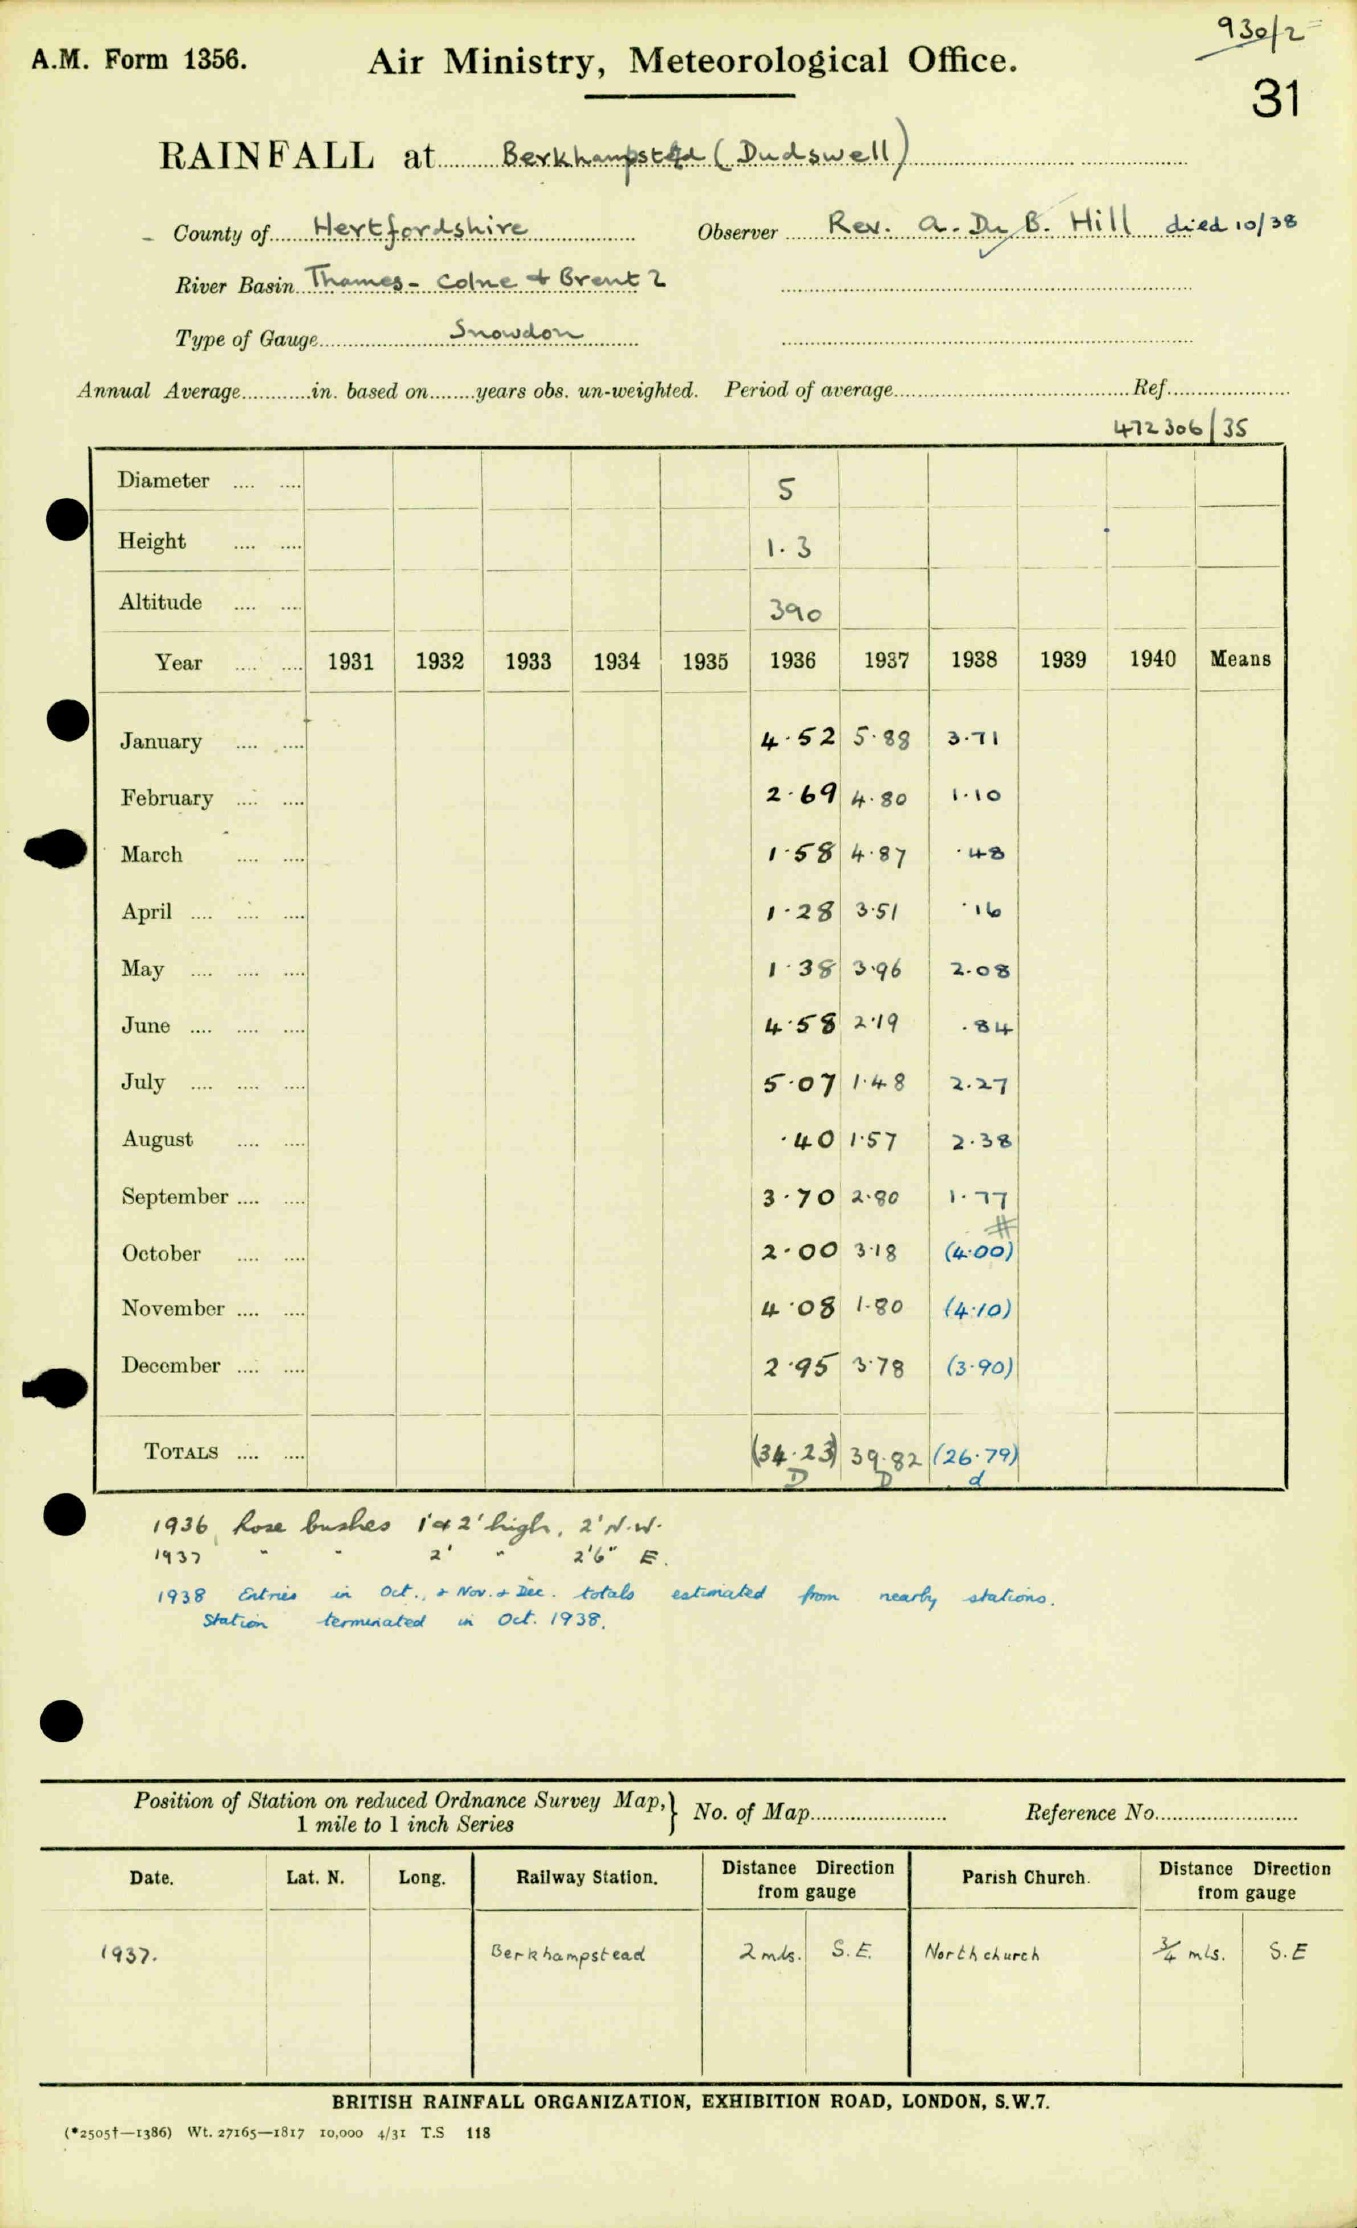 930/2
A.M. Form 1356. Air Ministry, Meteorological Office.
31
RAINFALL at Berkhampsted (Dudswell)
County of Hertfordshire Observer Rev. A. Du B. Hill died 10/38
River Basin Thames - Colne + Brent 2
Type of Gauge Snowdon
Annual Average in. based on years obs. un-weighted. Period of average Ref.
472306/35
Diameter 5
Height 1.3
Altitude 390
Year 1931 1932 1933 1934 1935 1936 1937 1938 1939 1940 Means
January 4.52 5.88 3.71
February 2.69 4.80 1.10
March 1.58 4.87 .48
April 1.28 3.51 .16
May 1.38 3.96 2.08
June 4.58 2.19 .84
July 5.07 1.48 2.27
August .40 1.57 2.38
September 3.70 2.80 1.77
#
October 2.00 3.18 (4.00)
November 4.08 1.80 (4.10)
December 2.95 3.78 (3.90)
TOTALS (34.23) 39.82 (26.79)
D D d
1936 Rose bushes 1' & 2' high, 2' N.W.
1937 " " 2' " 2'6" E.
1938 Entries in Oct., + Nov. + Dec. totals estimated from nearby stations.
Station terminated in Oct. 1938.
Position of Station on reduced Ordnance Survey Map, } No. of Map Reference No.
1 mile to 1 inch Series
Date. Lat. N. Long. Railway Station. Distance Direction from gauge Parish Church. Distance Direction from gauge
1937. Berkhampstead 2 mls. S.E. Northchurch 3/4 mls. S.E
BRITISH RAINFALL ORGANIZATION, EXHIBITION ROAD, LONDON, S.W.7.
(*2505†—1386) Wt. 27165—1817 10,000 4/31 T.S 118